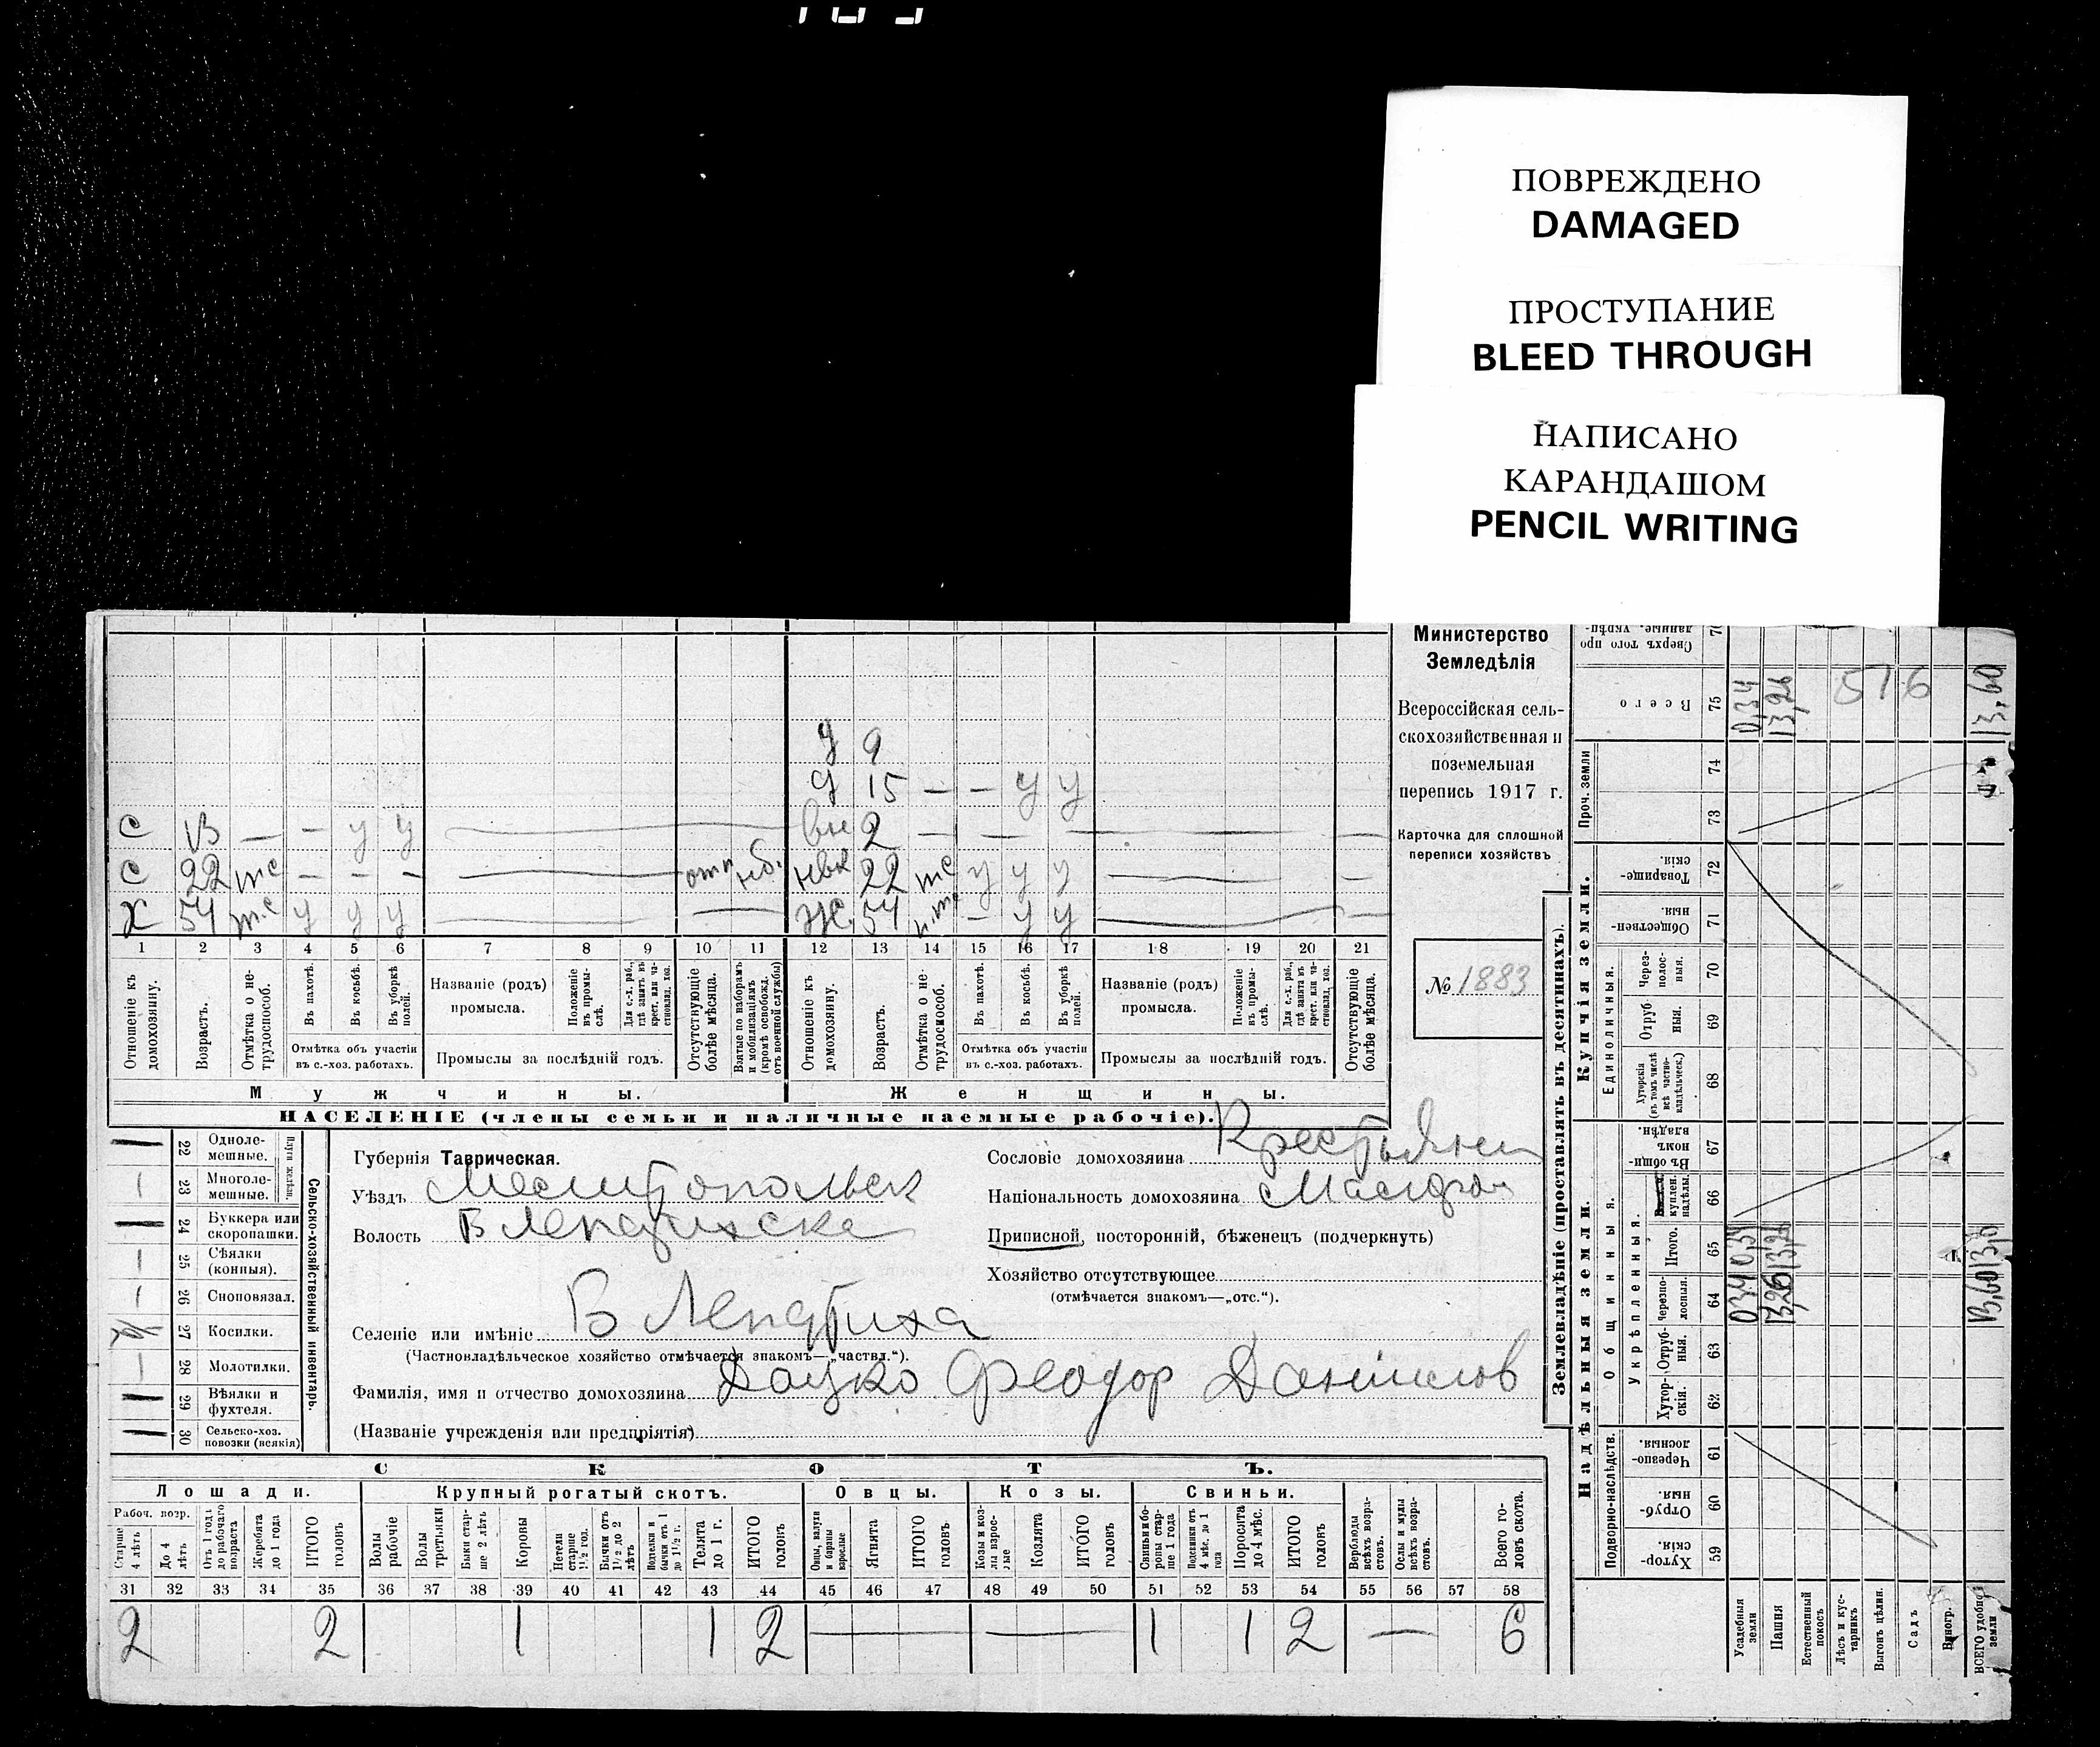 ПОВРЕЖДЕНО
DAMAGED
ПРОСТУПАНИЕ
BLEED THROUGH
НАПИСАНО
КАРАНДАШОМ
PENCIL WRITING
Министерство
Земледѣлія
Всероссійская сель-
скохозяйственная и
поземельная
перепись 1917 г.
Карточка для сплошной
переписи хозяйствъ
№ 1883
У 9
д 15 — — у у
С 13 — — у у вн 2 — — — —
С 22 тс — — — отп нб. нвк 22 тс у у у — —
Х 54 т.с у у у — — Ж. 54 — у у — —
1 2 3 4 5 6 7 8 9 10 11 12 13 14 15 16 17 18 19 20 21
Отношеніе къ домохозяину.
Возрастъ.
Отмѣтка о не-трудоспособ.
Въ пахотѣ.
Въ косьбѣ.
Въ уборкѣ полей.
Названіе (родъ) промысла.
Положеніе въ промы-слѣ.
Для с.-х. раб., гдѣ занятъ въ крест. или ча-стновлад. хоз.
Отсутствующіе болѣе мѣсяца.
Взятые по наборамъ и мобилизаціямъ (кромѣ освобожд. отъ военной службы)
Отношеніе къ домохозяину.
Возрастъ.
Отмѣтка о не-трудоспособ.
Въ пахотѣ.
Въ косьбѣ.
Въ уборкѣ полей.
Названіе (родъ) промысла.
Положеніе въ промы-слѣ.
Для с.-х. раб., гдѣ занята въ крест. или ча-стновлад. хоз.
Отсутствующіе болѣе мѣсяца.
Отмѣтка объ участіи въ с.-хоз. работахъ.
Промыслы за послѣдній годъ.
Отмѣтка объ участіи въ с.-хоз. работахъ.
Промыслы за послѣдній годъ.
Мужчины. Женщины.
НАСЕЛЕНІЕ (члены семьи и наличные наемные рабочіе).
Сельско-хозяйственный инвентарь.
22 Одноле-мешные.
23 Многоле-мешные.
24 Буккера или скоропашки.
25 Сѣялки (конныя).
26 Сноповязал.
27 Косилки.
28 Молотилки.
29 Вѣялки и фухтеля.
30 Сельско-хоз. повозки (всякія)
Губернія Таврическая.
Уѣздъ Мелитопольск
Волость В Лепатихска
Селеніе или имѣніе В Лепатиха
(Частновладѣльческое хозяйство отмѣчается знакомъ—„частвл.“).
Фамилія, имя и отчество домохозяина Дацко Феодор Данилов
(Названіе учрежденія или предпріятія)
Сословіе домохозяина Крестьянин
Національность домохозяина Малор
Приписной, посторонній, бѣженецъ (подчеркнуть)
Хозяйство отсутствующее
(отмѣчается знакомъ—„отс.“).
СКОТЪ.
Лошади. Крупный рогатый скотъ. Овцы. Козы. Свиньи.
Рабоч. возр.
Старше 4 лѣтъ
До 4 лѣтъ
Отъ 1 года до рабочаго возраста
Жеребята до 1 года
ИТОГО головъ
Волы рабочіе
Волы третьяки
Быки стар-ше 2 лѣтъ
Коровы
Нетели старше 1½ год.
Бычки отъ 1½ до 2 лѣтъ
Подтелки и бычки отъ 1 до 1½ г.
Телята до 1 г.
ИТОГО головъ
Овцы, валухи и бараны взрослые
Ягнята
ИТОГО головъ
Козы и коз-лы взрос-лые
Козлята
ИТОГО головъ
Свиньи и бо-ровы стар-ше 1 года
Подсвинки отъ 4 мѣс. до 1 года
Поросята до 4 мѣс.
ИТОГО головъ
Верблюды всѣхъ возра-стовъ.
Ослы и мулы всѣхъ возра-стовъ.
Всего го-ловъ скота.
31 32 33 34 35 36 37 38 39 40 41 42 43 44 45 46 47 48 49 50 51 52 53 54 55 56 57 58
2 2 1 1 2 — — 1 1 2 — 6
Землевладѣніе (проставлять въ десятинахъ).
Надѣльныя земли. Купчія земли.
Подворно-наслѣдств. Общинныя. Единоличныя. Проч. земли
Укрѣпленныя.
Хутор-скія. 59
Отруб-ныя. 60
Черезпо-лосныя. 61
Хутор-скія. 62
Отруб-ныя. 63
Черезпо-лосныя. 64
Итого. 65
куплен. надѣлы. 66
Въ общин-номъ владѣн. 67
Хуторскія (въ томъ числѣ всѣ частно-владѣльческ.) 68
Отруб-ныя. 69
Через-полос-ныя. 70
Обществен-ныя. 71
Товарище-скія. 72
73
74
Всего 75
Сверхъ того про
Усадебныя земли 0,34 0,34 0,34
Пашня 13,26 13,26 13,26
Естественный покосъ
Лѣсъ и кус-тарникъ
Выгонъ цѣлин.
Садъ
Виногр.
ВСЕГО удобной земли 13,60 13,60 13,60
576